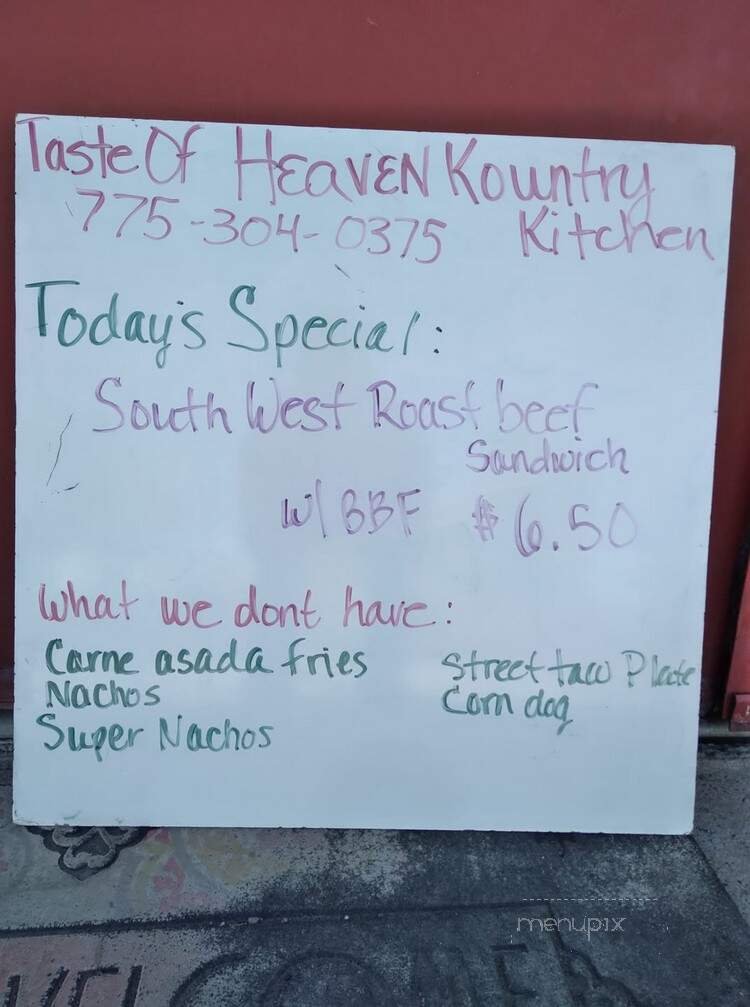 Taste Of HEAVEN Kountry
775-304-0375 Kitchen
Today's Special:
South West Roast beef
Sandwich
W/ BBF $6.50
What we dont have:
Carne asada fries
Nachos
Super Nachos
Street taco Plate
Corn dog
menupix
WELCOME